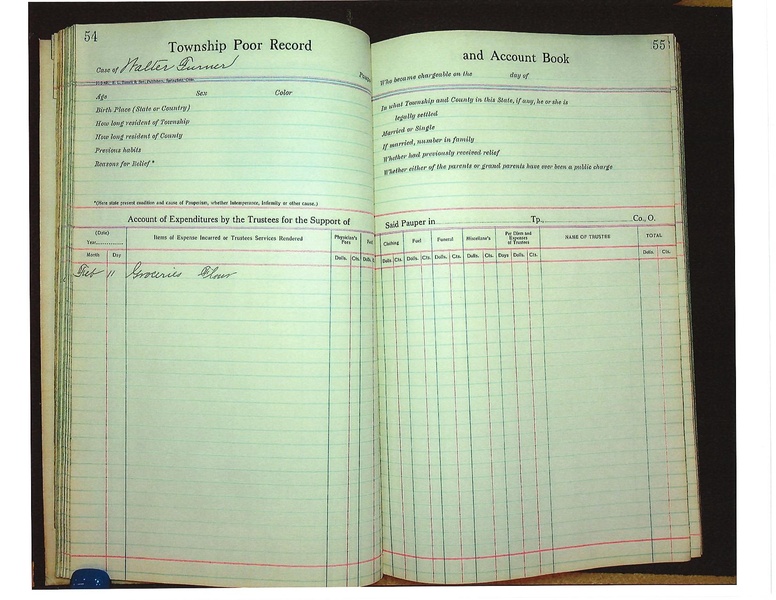 54
Township Poor Record
Case of Walter Turner
Age Sex Color
Birth Place (State or Country)
How long resident of Township
How long resident of County
Previous habits
Reasons for Relief*
*(Here state present condition and cause of Pauperism, whether Intemperance, Infirmity or other cause.)
Account of Expenditures by the Trustees for the Support of
(Date)
Year
Items of Expense Incurred or Trustees Services Rendered
Physician's Fees
Month Day
Dolls. Cts. Dolls.
Feb 11 Groceries Flour
55
and Account Book
Who became chargeable on the day of
In what Township and County in this State, if any, he or she is
legally settled
Married or Single
If married, number in family
Whether had previously received relief
Whether either of the parents or grand parents have ever been a public charge
Said Pauper in Tp., Co., O.
Clothing Fuel Funeral Miscellane's Per Diem and Expenses of Trustees NAME OF TRUSTEE TOTAL
Dolls. Cts. Dolls. Cts. Dolls. Cts. Dolls. Cts. Days Dolls. Cts. Dolls. Cts.